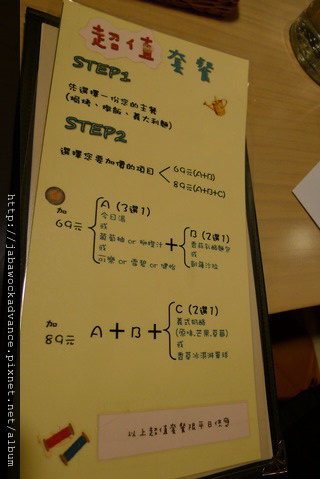 超值套餐
STEP1
先選擇一份您的主餐
(焗烤、燉飯、義大利麵)
STEP2
選擇您要加價的項目
69元(A+B)
89元(A+B+C)
加
69元
A (3選1)
今日湯
或
葡萄柚 or 柳橙汁
或
可樂 or 雪碧 or
+
B (2選1)
香蒜乳酪麵包
或
凱薩沙拉
加
89元
A+B+
C (2選1)
義式奶酪
(原味,芒果,草莓)
或
香草冰淇淋單球
以上超值套餐限平日使用
http://jabawockadvance.pixnet.net/album